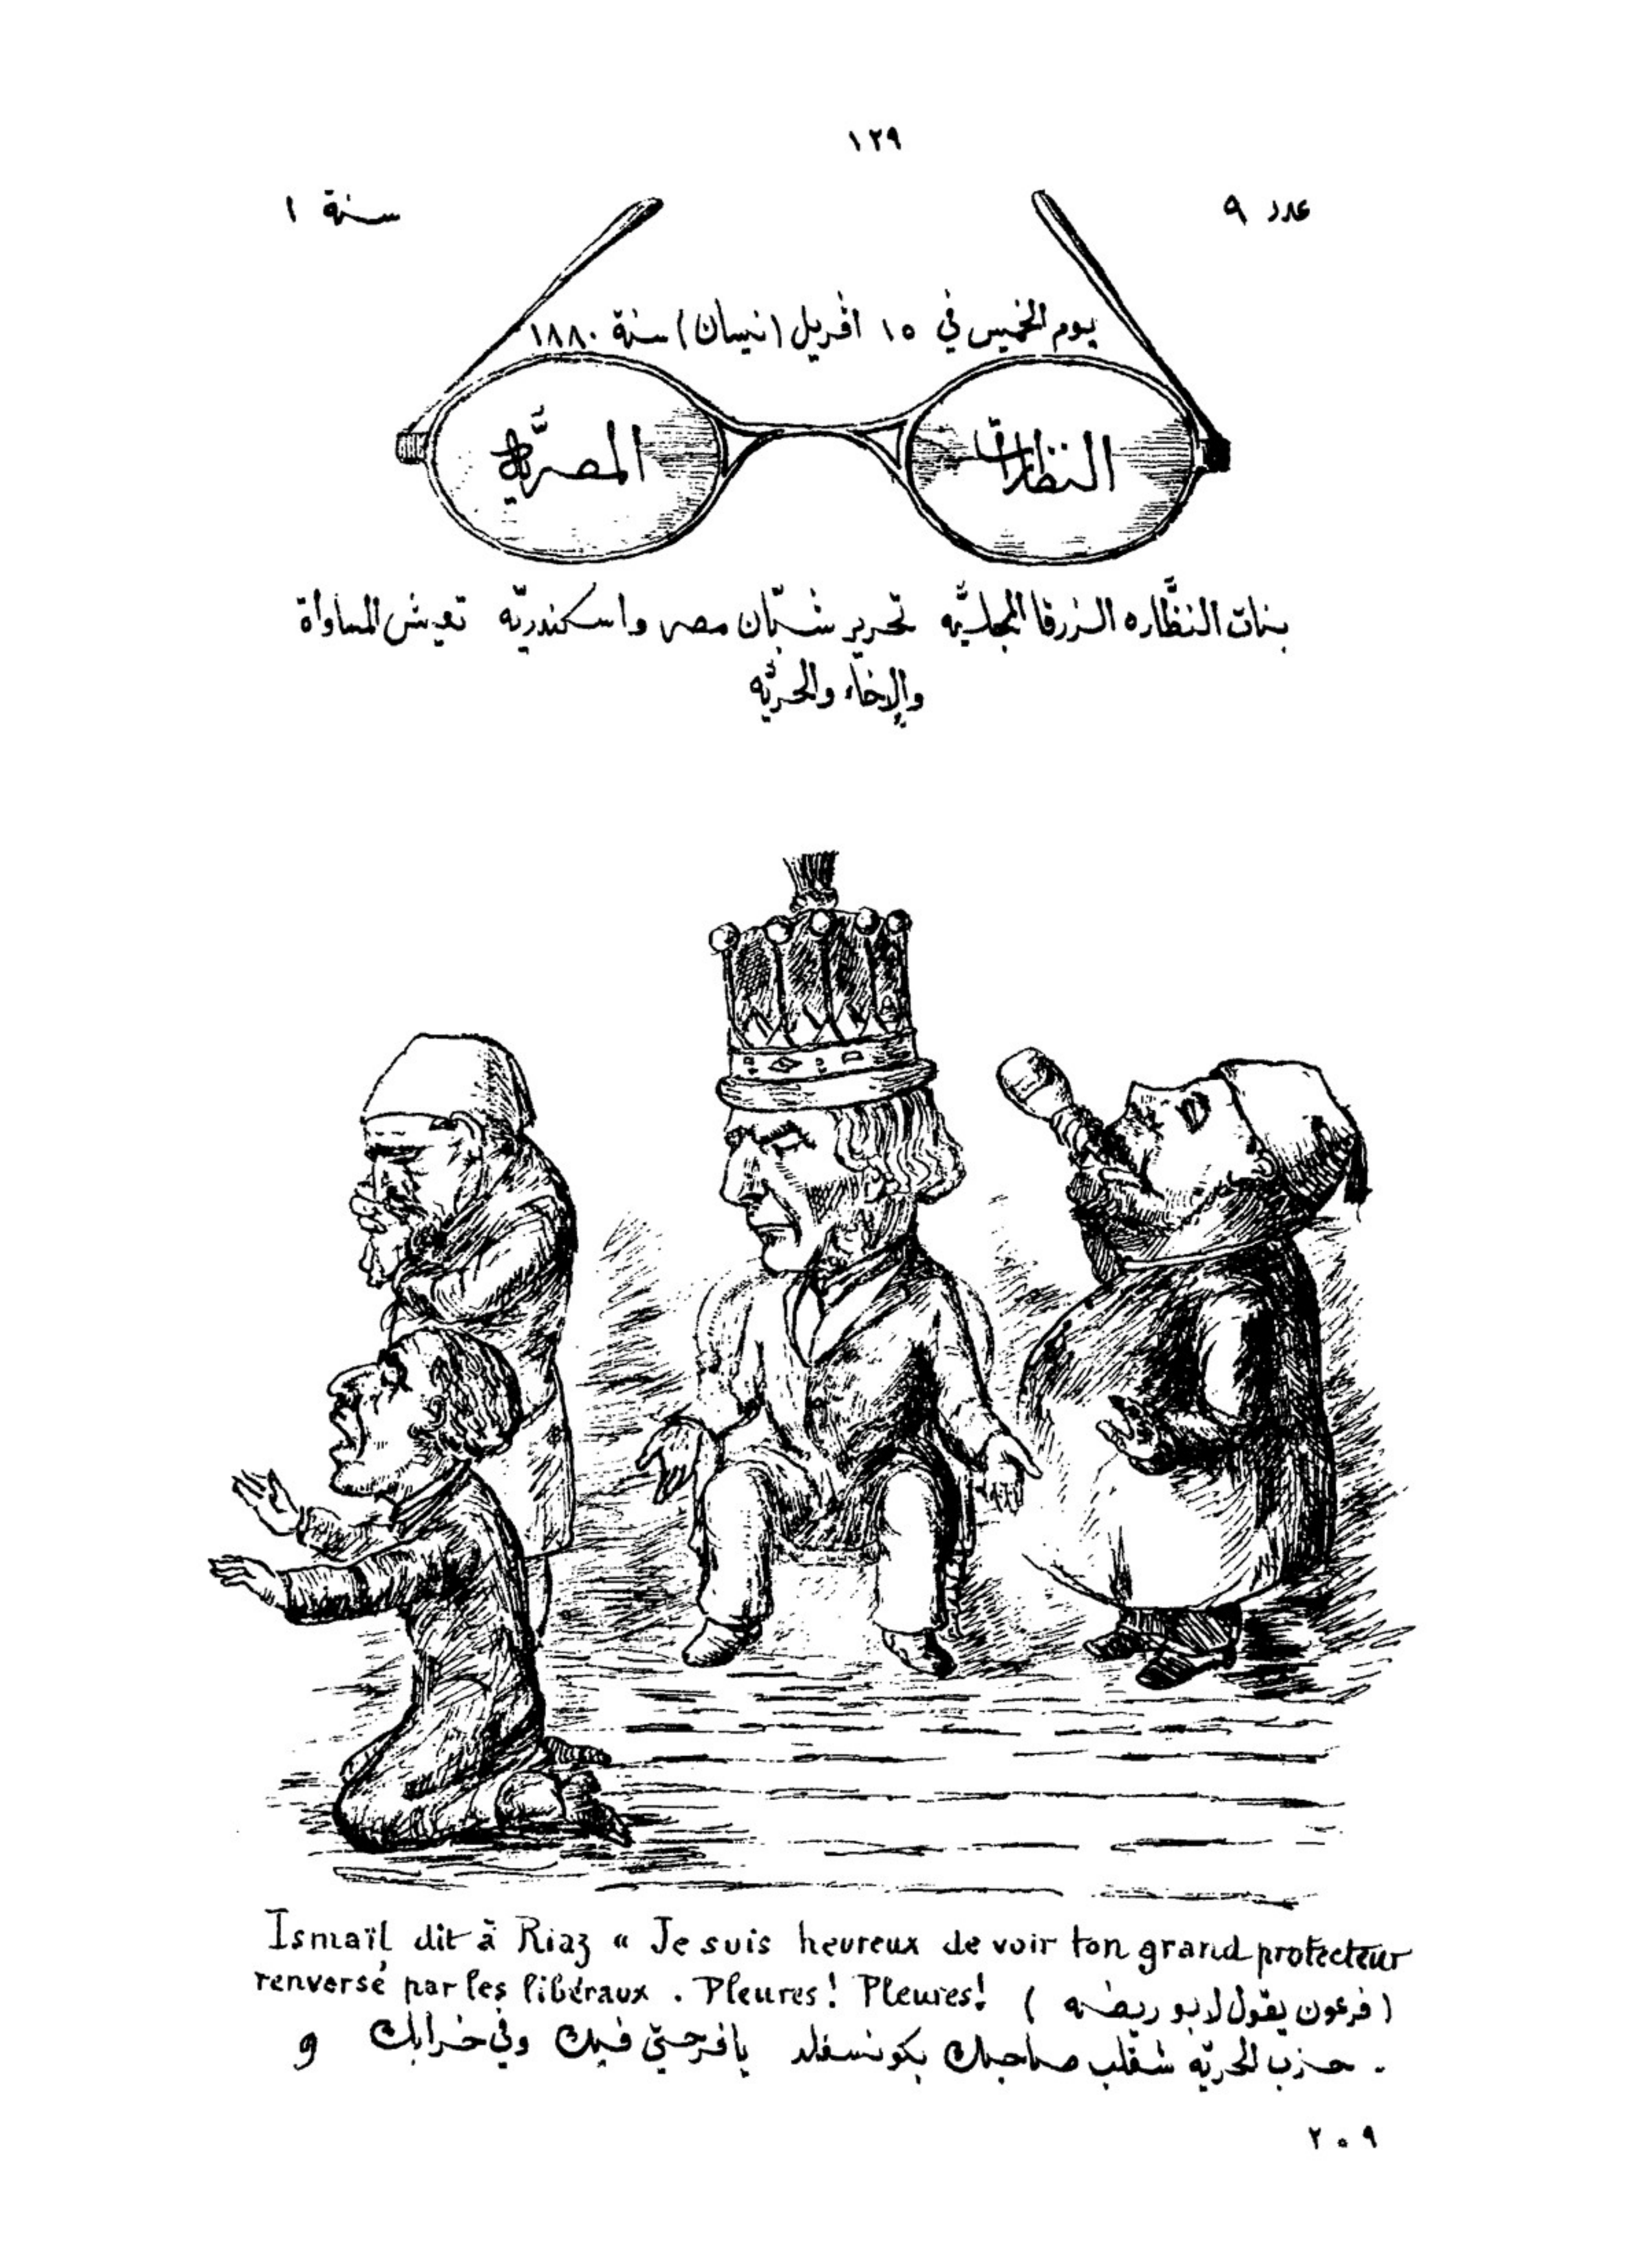 ١٢٩
عدد ٩
سنة ١
يوم الخميس في ١٥ افريل (نيسان) سنة ١٨٨٠
النظارات
المصريَّة
بنات النظَّاره الزرقا المجليَّه تحرير شبّان مصر واسكندريّه تعيش المساواة
والإخاء والحريَّه
Ismaïl dit à Riaz « Je suis heureux de voir ton grand protecteur
renversé par les libéraux . Pleures! Pleures!
(فرعون يقول لابو ريضه)
. حزب الحريّه شقلب صاحبك بكونسفلد يا فرحتي فيك وفي خرابك و
٢٠٩